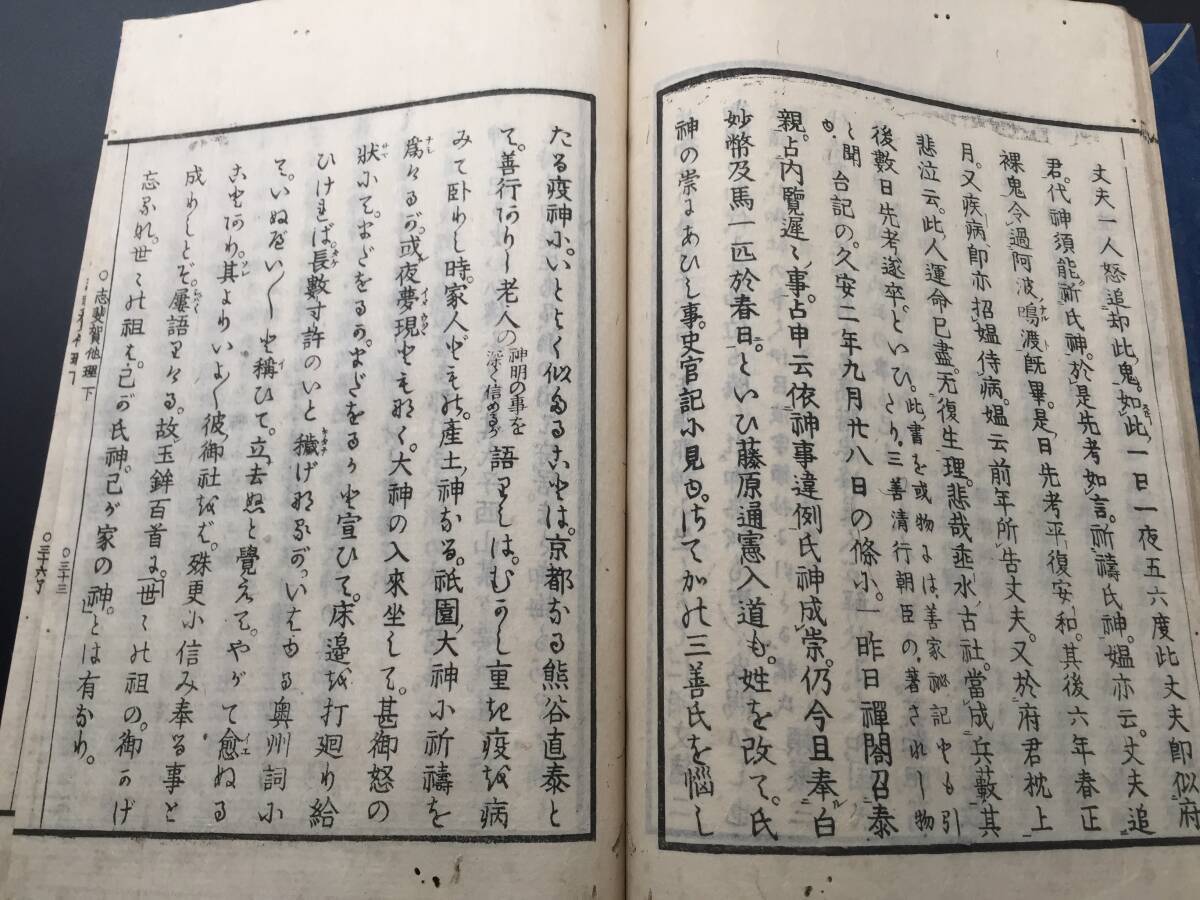 丈夫一人怒追却此鬼。如此、一日一夜五六度此丈夫即似府
君。代神須能祈氏神。於是先考如言。祈禱氏神。媼亦云。丈夫追
裸鬼令過阿波鳴渡旣畢。是日先考平復安和。其後六年春正
月。又疾病即亦招媼侍病。媼云前年所告丈夫。又於府君枕上
悲泣云。此人運命已盡。无復生理。悲哉。水古社。當成兵藪其
後數日先考遂卒。といひたり。三善清行朝臣の著されし物
ゝ聞台記の久安二年九月廿八日の條小。一昨日禪閤召泰
親。占内覽遲々事。占申云依神事違例氏神成祟。仍今旦奉白
妙幣及馬一匹於春日。といひ藤原通憲入道も。姓を改て。氏
神の祟にあひし事。史官記小見ゆ。さてかの三善氏を惱し
たる疫神小。いとよく似たることは。京都なる熊谷直泰と
て。善行ありし老人の神明の事を深く信めるが語りしは。むかし重き疫を病
みて臥わし時。家人どもの。產土神なる。祇園大神小祈禱を
爲けるが。或夜夢現ともなく。大神の入來坐して。甚御怒の
狀小て。まだをるか。まだをるかと宣ひて。床邊を打廻り給
ひければ。長數寸許のいと穢げなるが。いはゆる奥州詞小
て。いぬべい〳〵と稱ひて。立去ぬと覺えて。やがて愈ぬる
ことあり。其よりいよ〳〵彼御社をば。殊更小信み奉る事と
成りしとぞ。屢語りける。故玉鉾百首に。世々の祖の。御かげ
忘るな。世々の祖は。己が氏神。己が家の神。とは有なり。
○志斐賀他理下
○三十三
○三十六丁